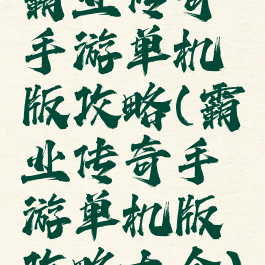 霸业传奇
手游单机
版攻略(霸
业传奇手
游单机版
攻略大全)